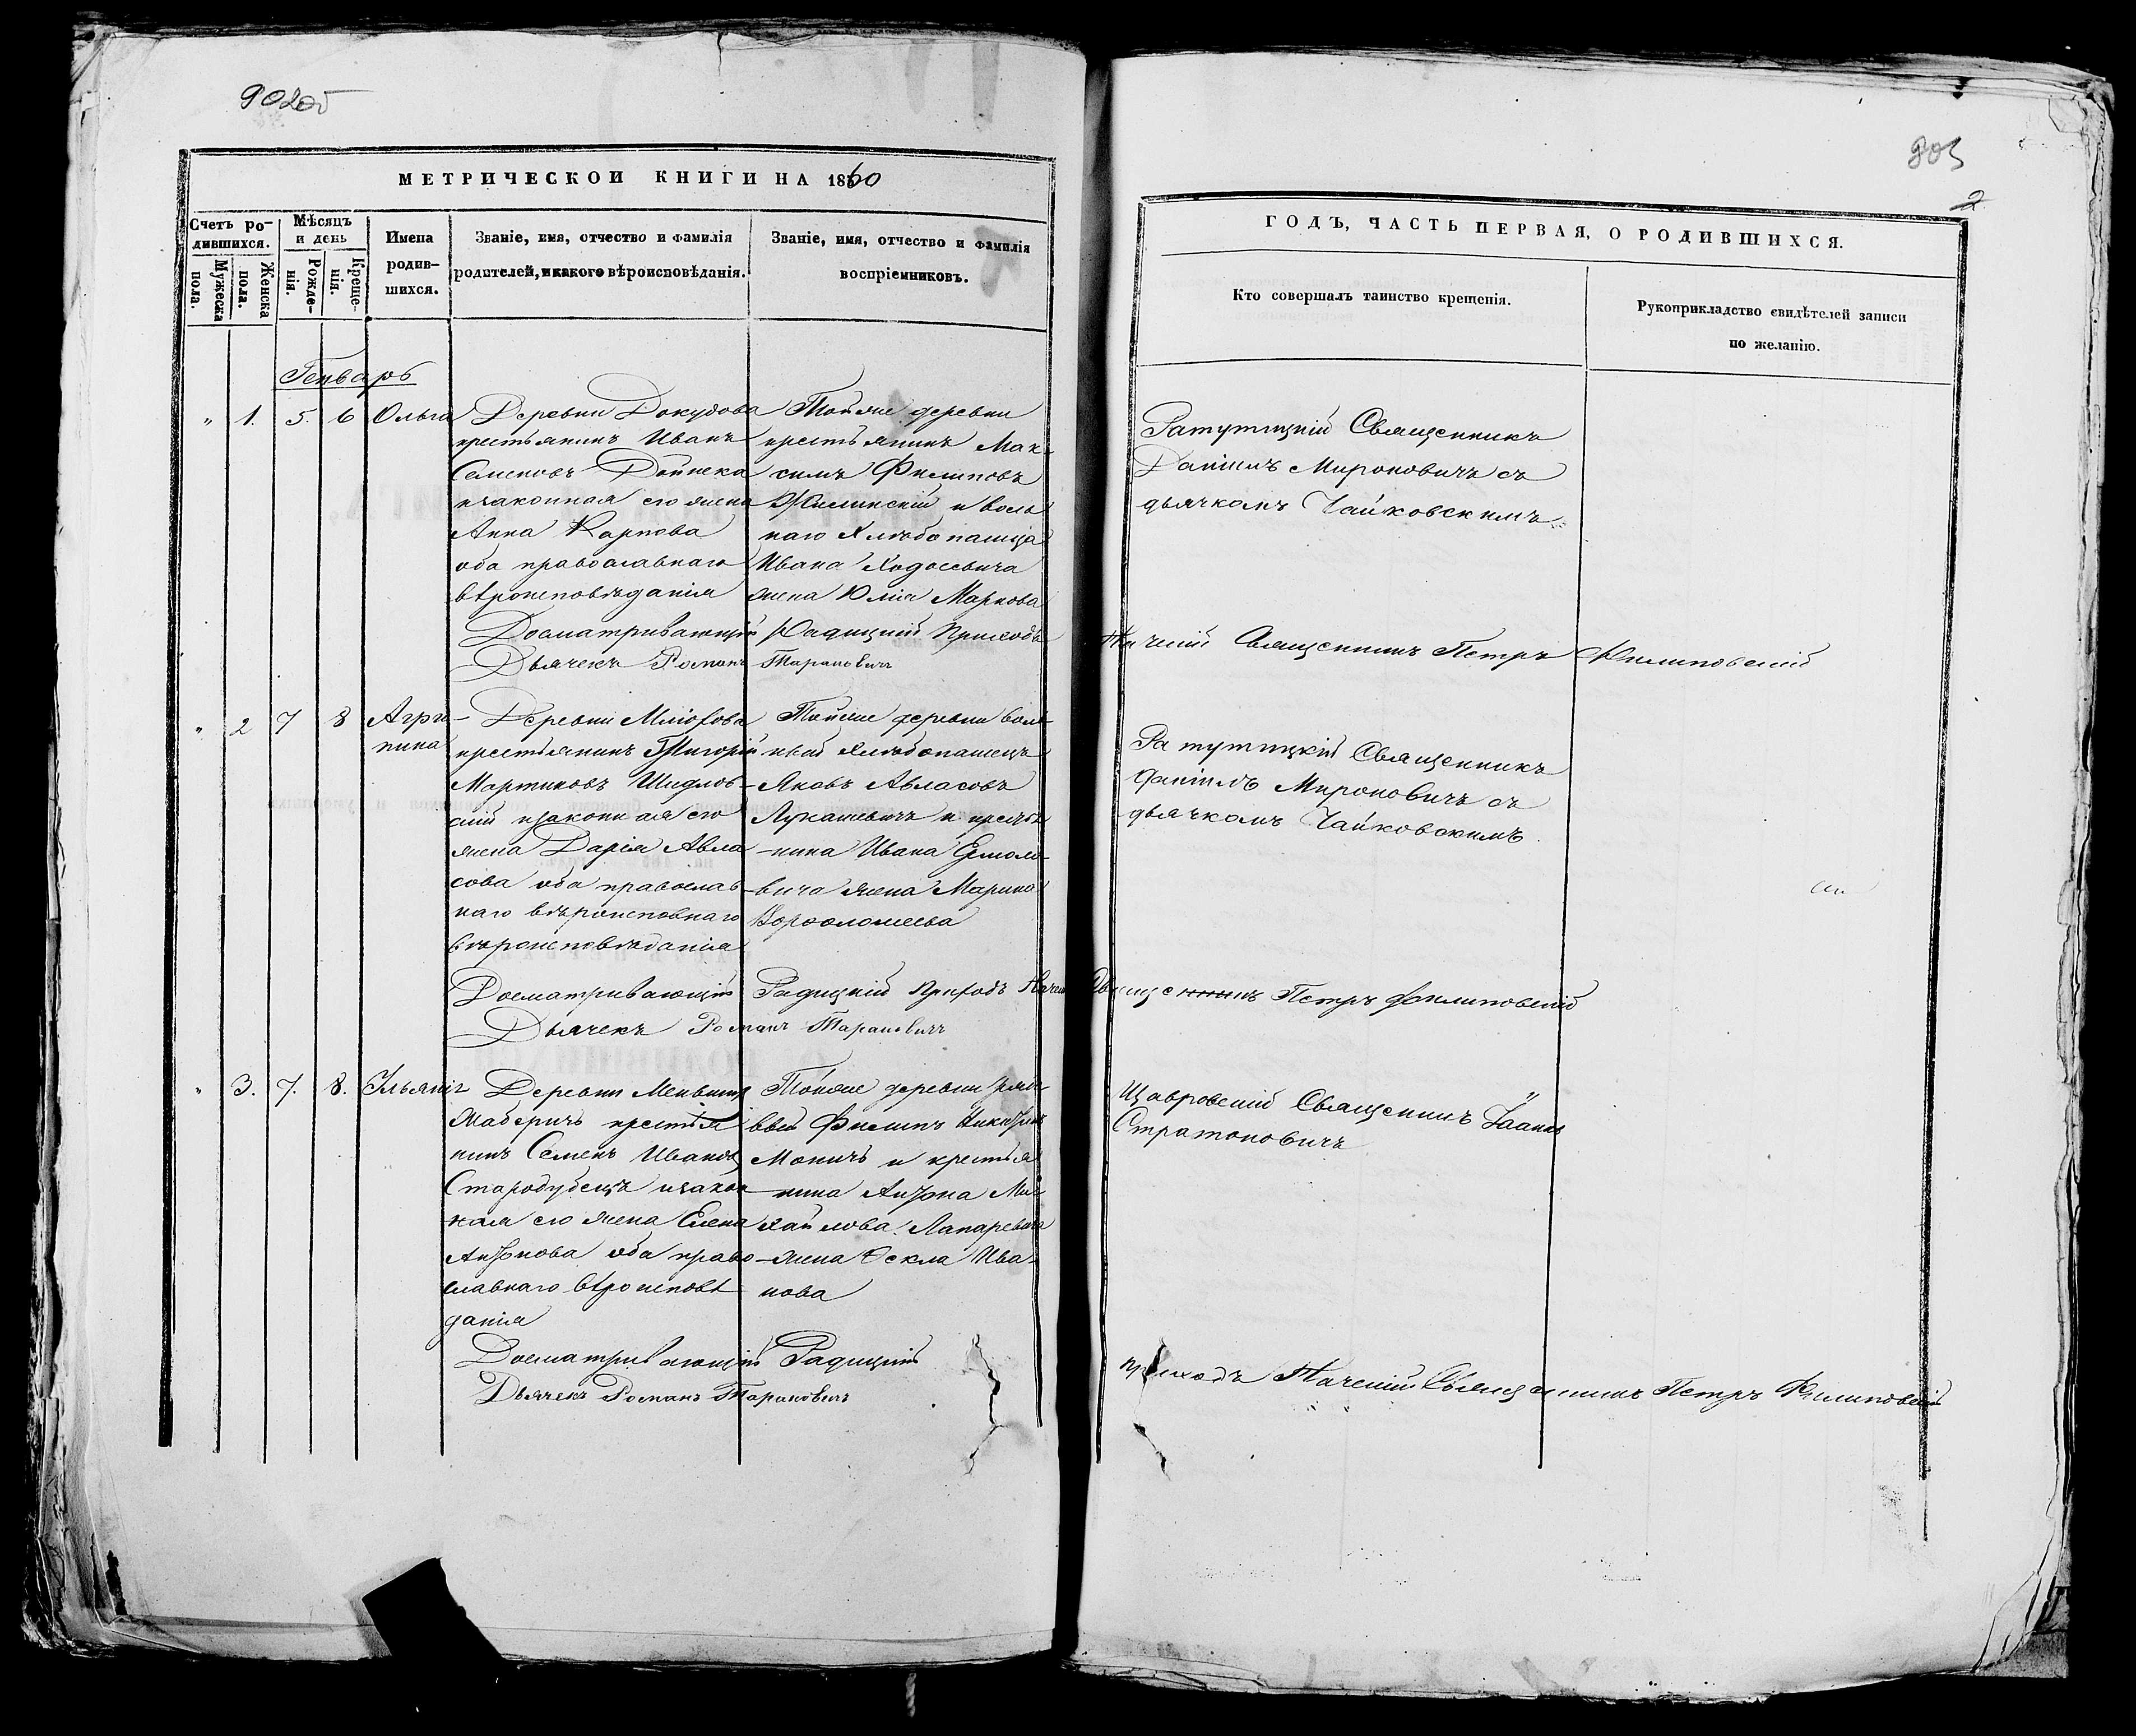 902об
МЕТРИЧЕСКОИ КНИГИ НА 1860
Счетъ ро-
дившихся.
Мужеска
пола.
Женска
пола.
Мѣсяцъ
и день
Рожде-
нія.
Креще-
нія.
Имена
родив-
шихся.
Званіе, имя, отчество и фамилія
родителей, и какого вѣроисповѣданія.
Званіе, имя, отчество и фамилія
воспріемниковъ.
Генварь
" 1. 5. 6 Ольга
Деревни Докудова
крестьянинъ Иванъ
Семеновъ Дайнека
изаконная его жена
Анна Карпова
оба православнаго
вѣроисповѣданія
Тойже деревни
крестьянинъ Мак-
симъ Филиповъ
Жилинскій и воль
наго Хлѣбопашца
Ивана Ходосевича
жена Юлія Маркова
Досматривающій Радицкій Приходъ
Дьячекъ Романъ Тарановичъ
" 2 7 8 Агри-
пина
Деревни
крестьянинъ Григорій
Мартиновъ Шидлов-
скій изаконная его
жена Дарія Авла
сова оба православ
наго вѣроисповнаго
вѣроисповѣданія
Тойже деревни воль-
ный Хлѣбопашецъ
Яковъ Авласовъ
Лукашевичъ и крестья
-нина Ивана Ермоло-
вича жена Марина
Ворфоломеева
Досматривающій Радицкій Приходъ
Дьячекъ Романъ Тарановичъ
" 3. 7. 8. Ульянія
Деревни
крестья
нинъ Семенъ Ивановъ
Стародубецъ изакон
ная его жена Елена
Антонова оба право
славнаго вѣроисповѣ
данія
Тойже деревни
Филипъ
и крестья
-нина Антона Ми-
хайлова Лапаревича
-жена Фекла Ива-
нова
Досматривающій Радицкій
Дьячекъ Романъ Тарановичъ
903
2
ГОДЪ, ЧАСТЬ ПЕРВАЯ, О РОДИВШИХСЯ.
Кто совершалъ таинство крещенія.
Рукоприкладство свидѣтелей записи
по желанію.
Ратутицкій Священникъ
Даніилъ Мироновичъ съ
дьячкомъ Чайковскимъ
Священникъ Петръ Филиповскій
Ратутицкій Священникъ
Даніилъ Мироновичъ съ
дьячкомъ Чайковскимъ
Священникъ Петръ Филиповскій
Щавровскій Священникъ Іоаннъ
Стратоновичъ
приходъ Священникъ Петръ Филиповскій